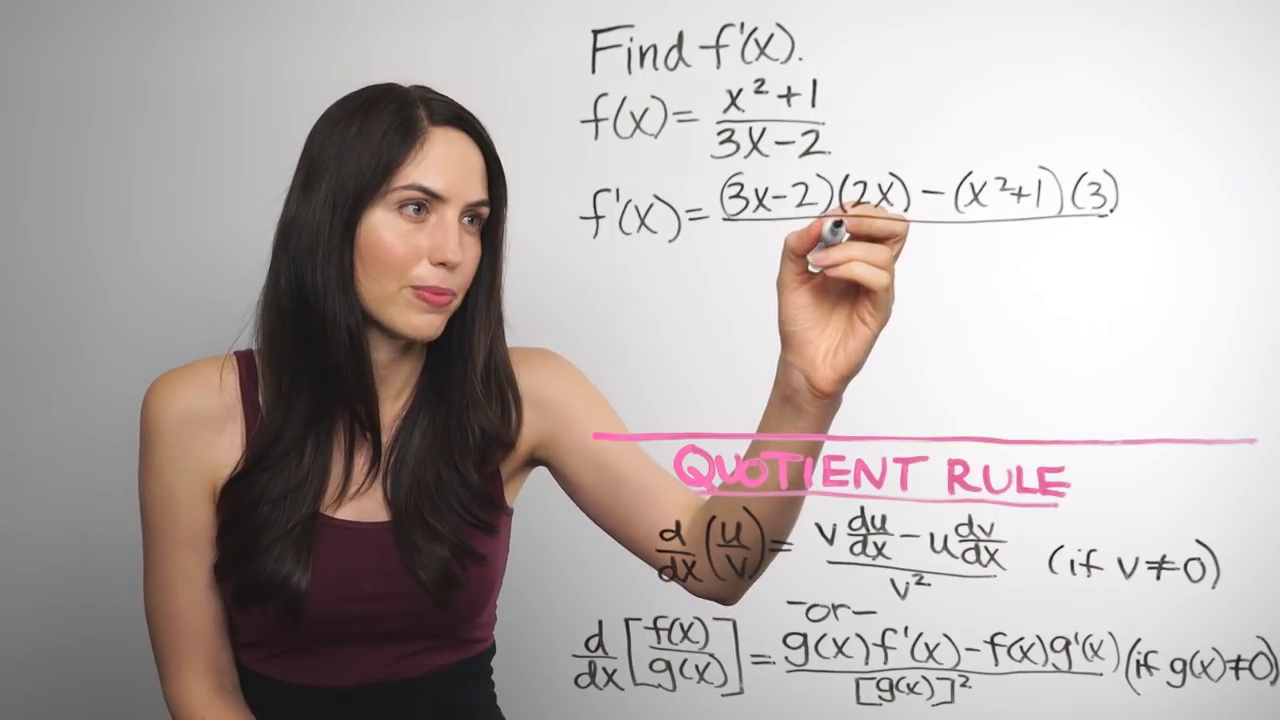 Find f'(x).
f(x) = (x² + 1)/(3x - 2)
f'(x) = (3x-2)(2x) - (x²+1)(3)
QUOTIENT RULE
d/dx (u/v) = (v du/dx - u dv/dx)/v² (if v ≠ 0)
-or-
d/dx [f(x)/g(x)] = (g(x)f'(x) - f(x)g'(x))/[g(x)]² (if g(x) ≠ 0)